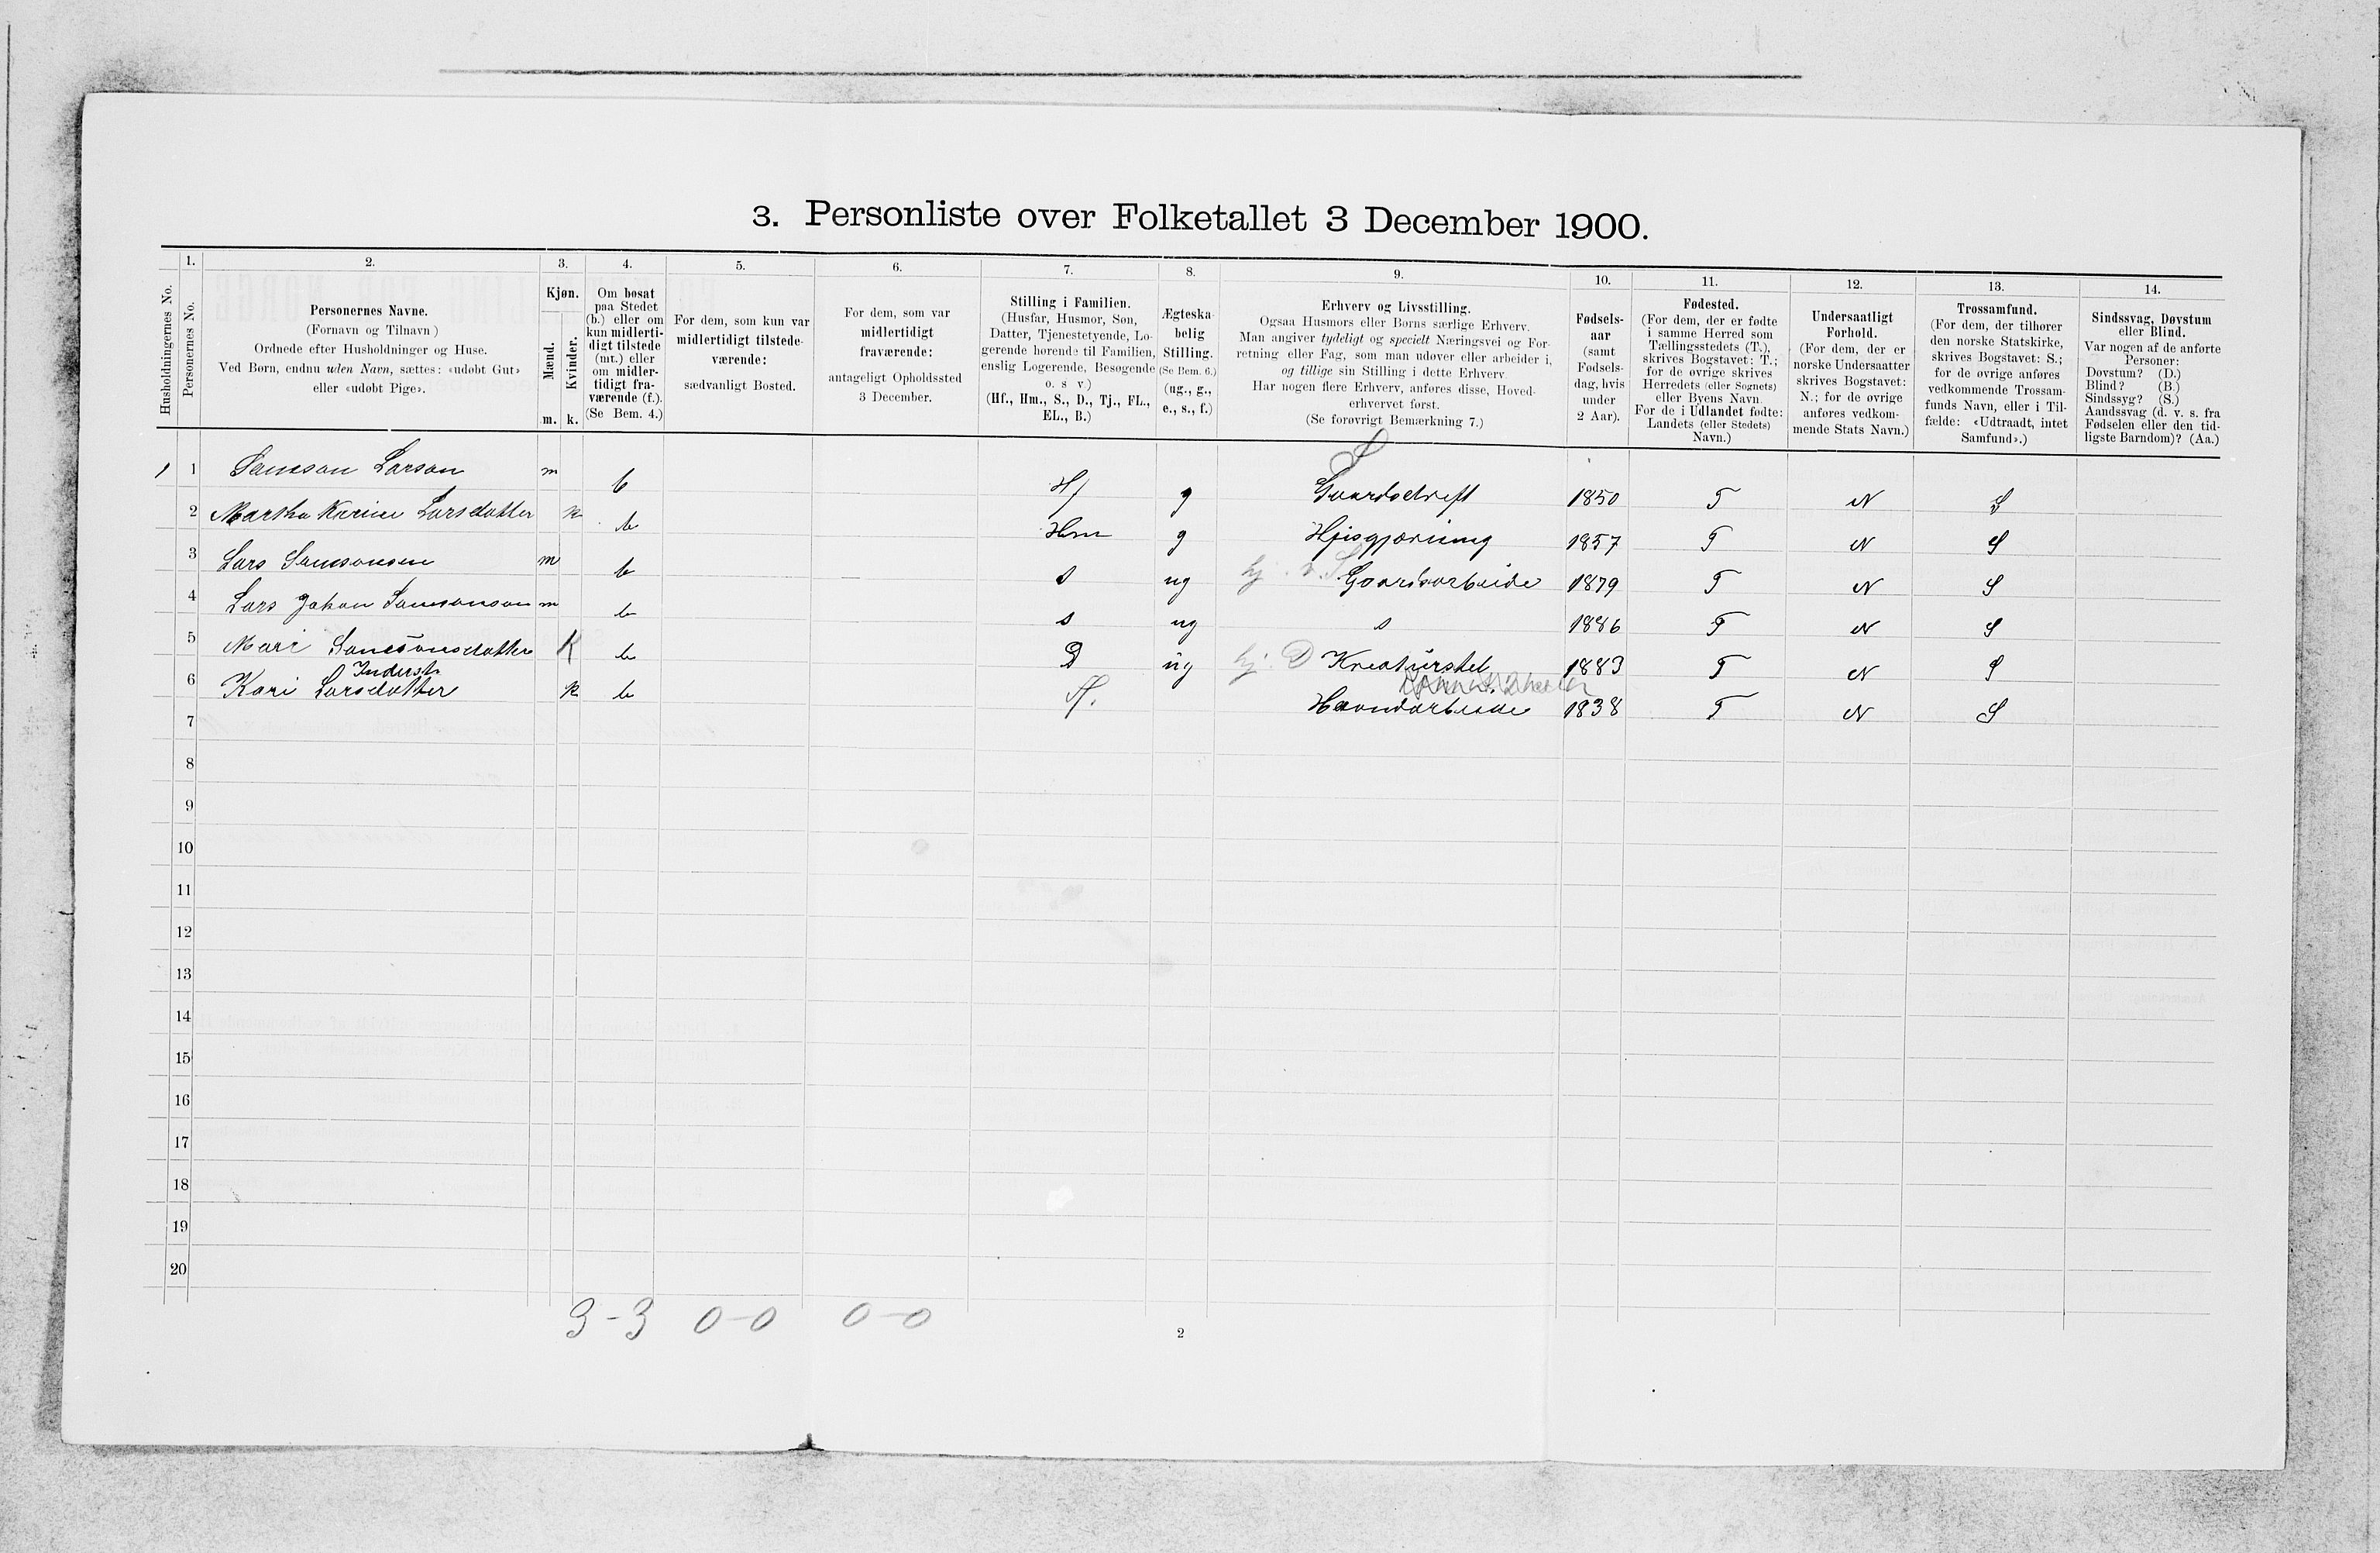 3. Personliste over Folketallet 3 December 1900.
1. 2. 3. 4. 5. 6. 7. 8. 9. 10. 11. 12. 13. 14.
Husholdningernes No.
Personernes No.
Personernes Navne.
(Fornavn og Tilnavn)
Ordnede efter Husholdninger og Huse.
Ved Børn, endnu uden Navn, sættes: «udøbt Gut»
eller «udøbt Pige».
Kjøn.
Mænd.
Kvinder.
m. k.
Om bosat
paa Stedet
(b.) eller om
kun midlerti-
digt tilstede
(mt.) eller
om midler-
tidigt fra-
værende (f.).
(Se Bem. 4.)
For dem, som kun var
midlertidigt tilstede-
værende:
sædvanligt Bosted.
For dem, som var
midlertidigt
fraværende:
antageligt Opholdssted
3 December.
Stilling i Familien.
(Husfar, Husmor, Søn,
Datter, Tjenestetyende, Lo-
gerende hørende til Familien,
enslig Logerende, Besøgende
o. s v.)
(Hf., Hm., S., D., Tj., FL.,
EL., B.)
Ægteska-
belig
Stilling.
(Se Bem. 6.)
(ug., g.,
e., s., f.)
Erhverv og Livsstilling.
Ogsaa Husmors eller Børns særlige Erhverv.
Man angiver tydeligt og specielt Næringsvei og For-
retning eller Fag, som man udøver eller arbeider i,
og tillige sin Stilling i dette Erhverv.
Har nogen flere Erhverv, anføres disse, Hoved-
erhvervet først.
(Se forøvrigt Bemærkning 7.)
Fødsels-
aar
(samt
Fødsels-
dag, hvis
under
2 Aar).
Fødested.
(For dem, der er fødte
i samme Herred som
Tællingsstedets (T.),
skrives Bogstavet: T.;
for de øvrige skrives
Herredets (eller Sognets)
eller Byens Navn.
For de i Udlandet fødte:
Landets (eller Stedets)
Navn.)
Undersaatligt
Forhold.
(For dem, der er
norske Undersaatter
skrives Bogstavet:
N.; for de øvrige
anføres vedkom-
mende Stats Navn.)
Trossamfund.
(For dem, der tilhører
den norske Statskirke,
skrives Bogstavet: S.;
for de øvrige anføres
vedkommende Trossam-
funds Navn, eller i Til-
fælde: «Udtraadt, intet
Samfund».)
Sindssvag, Døvstum
eller Blind.
Var nogen af de anførte
Personer:
Døvstum? (D.)
Blind? (B.)
Sindssyg? (S.)
Aandssvag (d. v. s. fra
Fødselen eller den tid-
ligste Barndom)? (Aa.)
S
1 1 Samson Larson m b Hf g Gaardsdrift 1850 T N S
2 Martha Karine Larsdatter k b Hm g Hjisgjøring 1857 T N S
3 Lars Samsonsen m b s ug hj. v. S Gaardsarbeide 1879 T N S
4 Lars Johan Samsonson m b s ug s 1886 T N S
5 Mari Samsonsdatter K b D ug hj. D Kreaturstel 1883 T N S
Inderst.
6 Kari Larsdatter k b H. Haandarbeide 1838 T N S
7
8
9
10
11
12
13
14
15
16
17
18
19
20
3-3 0-0 0-0
2